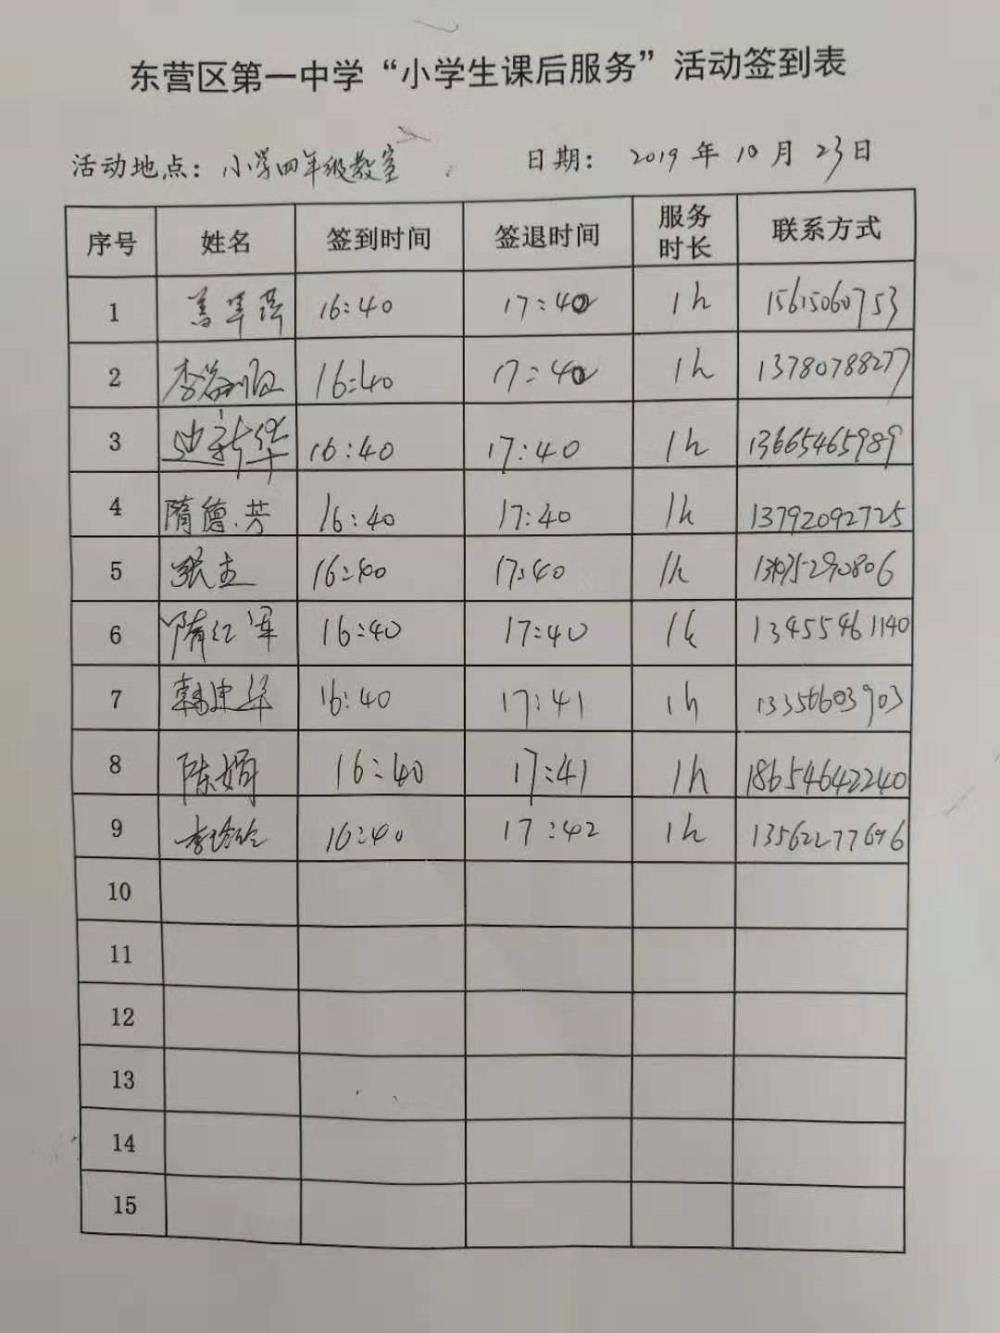 东营区第一中学“小学生课后服务”活动签到表
活动地点：小学四年级教室 日期：2019年10月23日
序号 姓名 签到时间 签退时间 服务时长 联系方式
1 16:40 17:40 1h 15615060753
2 16:40 17:40 1h 13780788277
3 新华 16:40 17:40 1h 13665465989
4 隋德芳 16:40 17:40 1h 13792092725
5 张杰 16:40 17:40 1h
6 隋红军 16:40 17:40 1h 13455461140
7 韩建华 16:40 17:41 1h 13356603903
8 陈娟 16:40 17:41 1h 18654642240
9 李 16:40 17:42 1h 13562277696
10
11
12
13
14
15